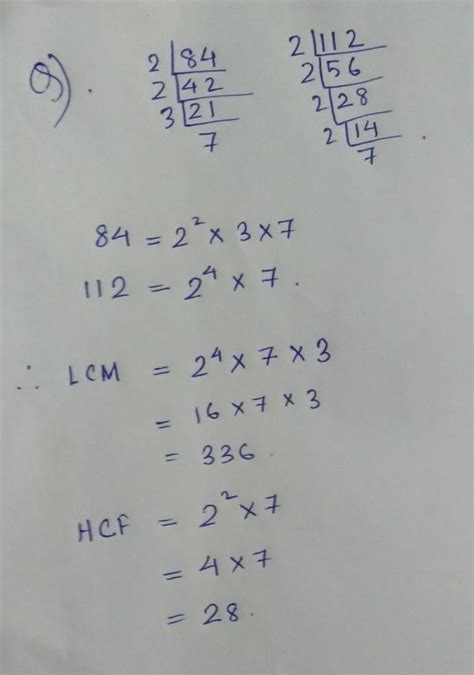 Q).
2 84
2 42
3 21
7
2 112
2 56
2 28
2 14
7
84 = 2² × 3 × 7
112 = 2⁴ × 7.
∴ LCM = 2⁴ × 7 × 3
= 16 × 7 × 3
= 336
HCF = 2² × 7
= 4 × 7
= 28.